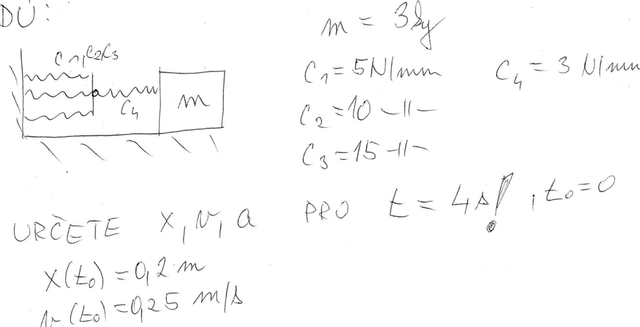 DÚ:
m = 3kg
C1C2C3
C1 = 5N/mm
C4 = 3 N/mm
C4
m
C2 = 10 -||-
C3 = 15 -||-
URČETE x, v, a PRO t = 4s! , t0=0
x(t0) = 0,2 m
v(t0) = 0,25 m/s